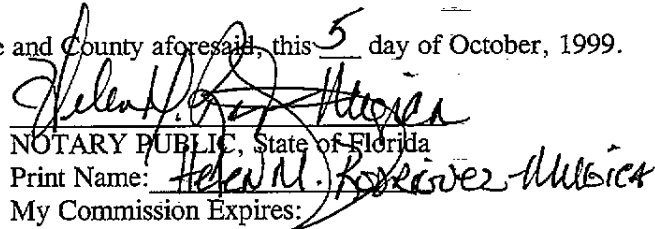 e and County aforesaid, this 5 day of October, 1999.
Helen M. Mugica
NOTARY PUBLIC, State of Florida
Print Name: Helen M. Rodriguez-Mugica
My Commission Expires: